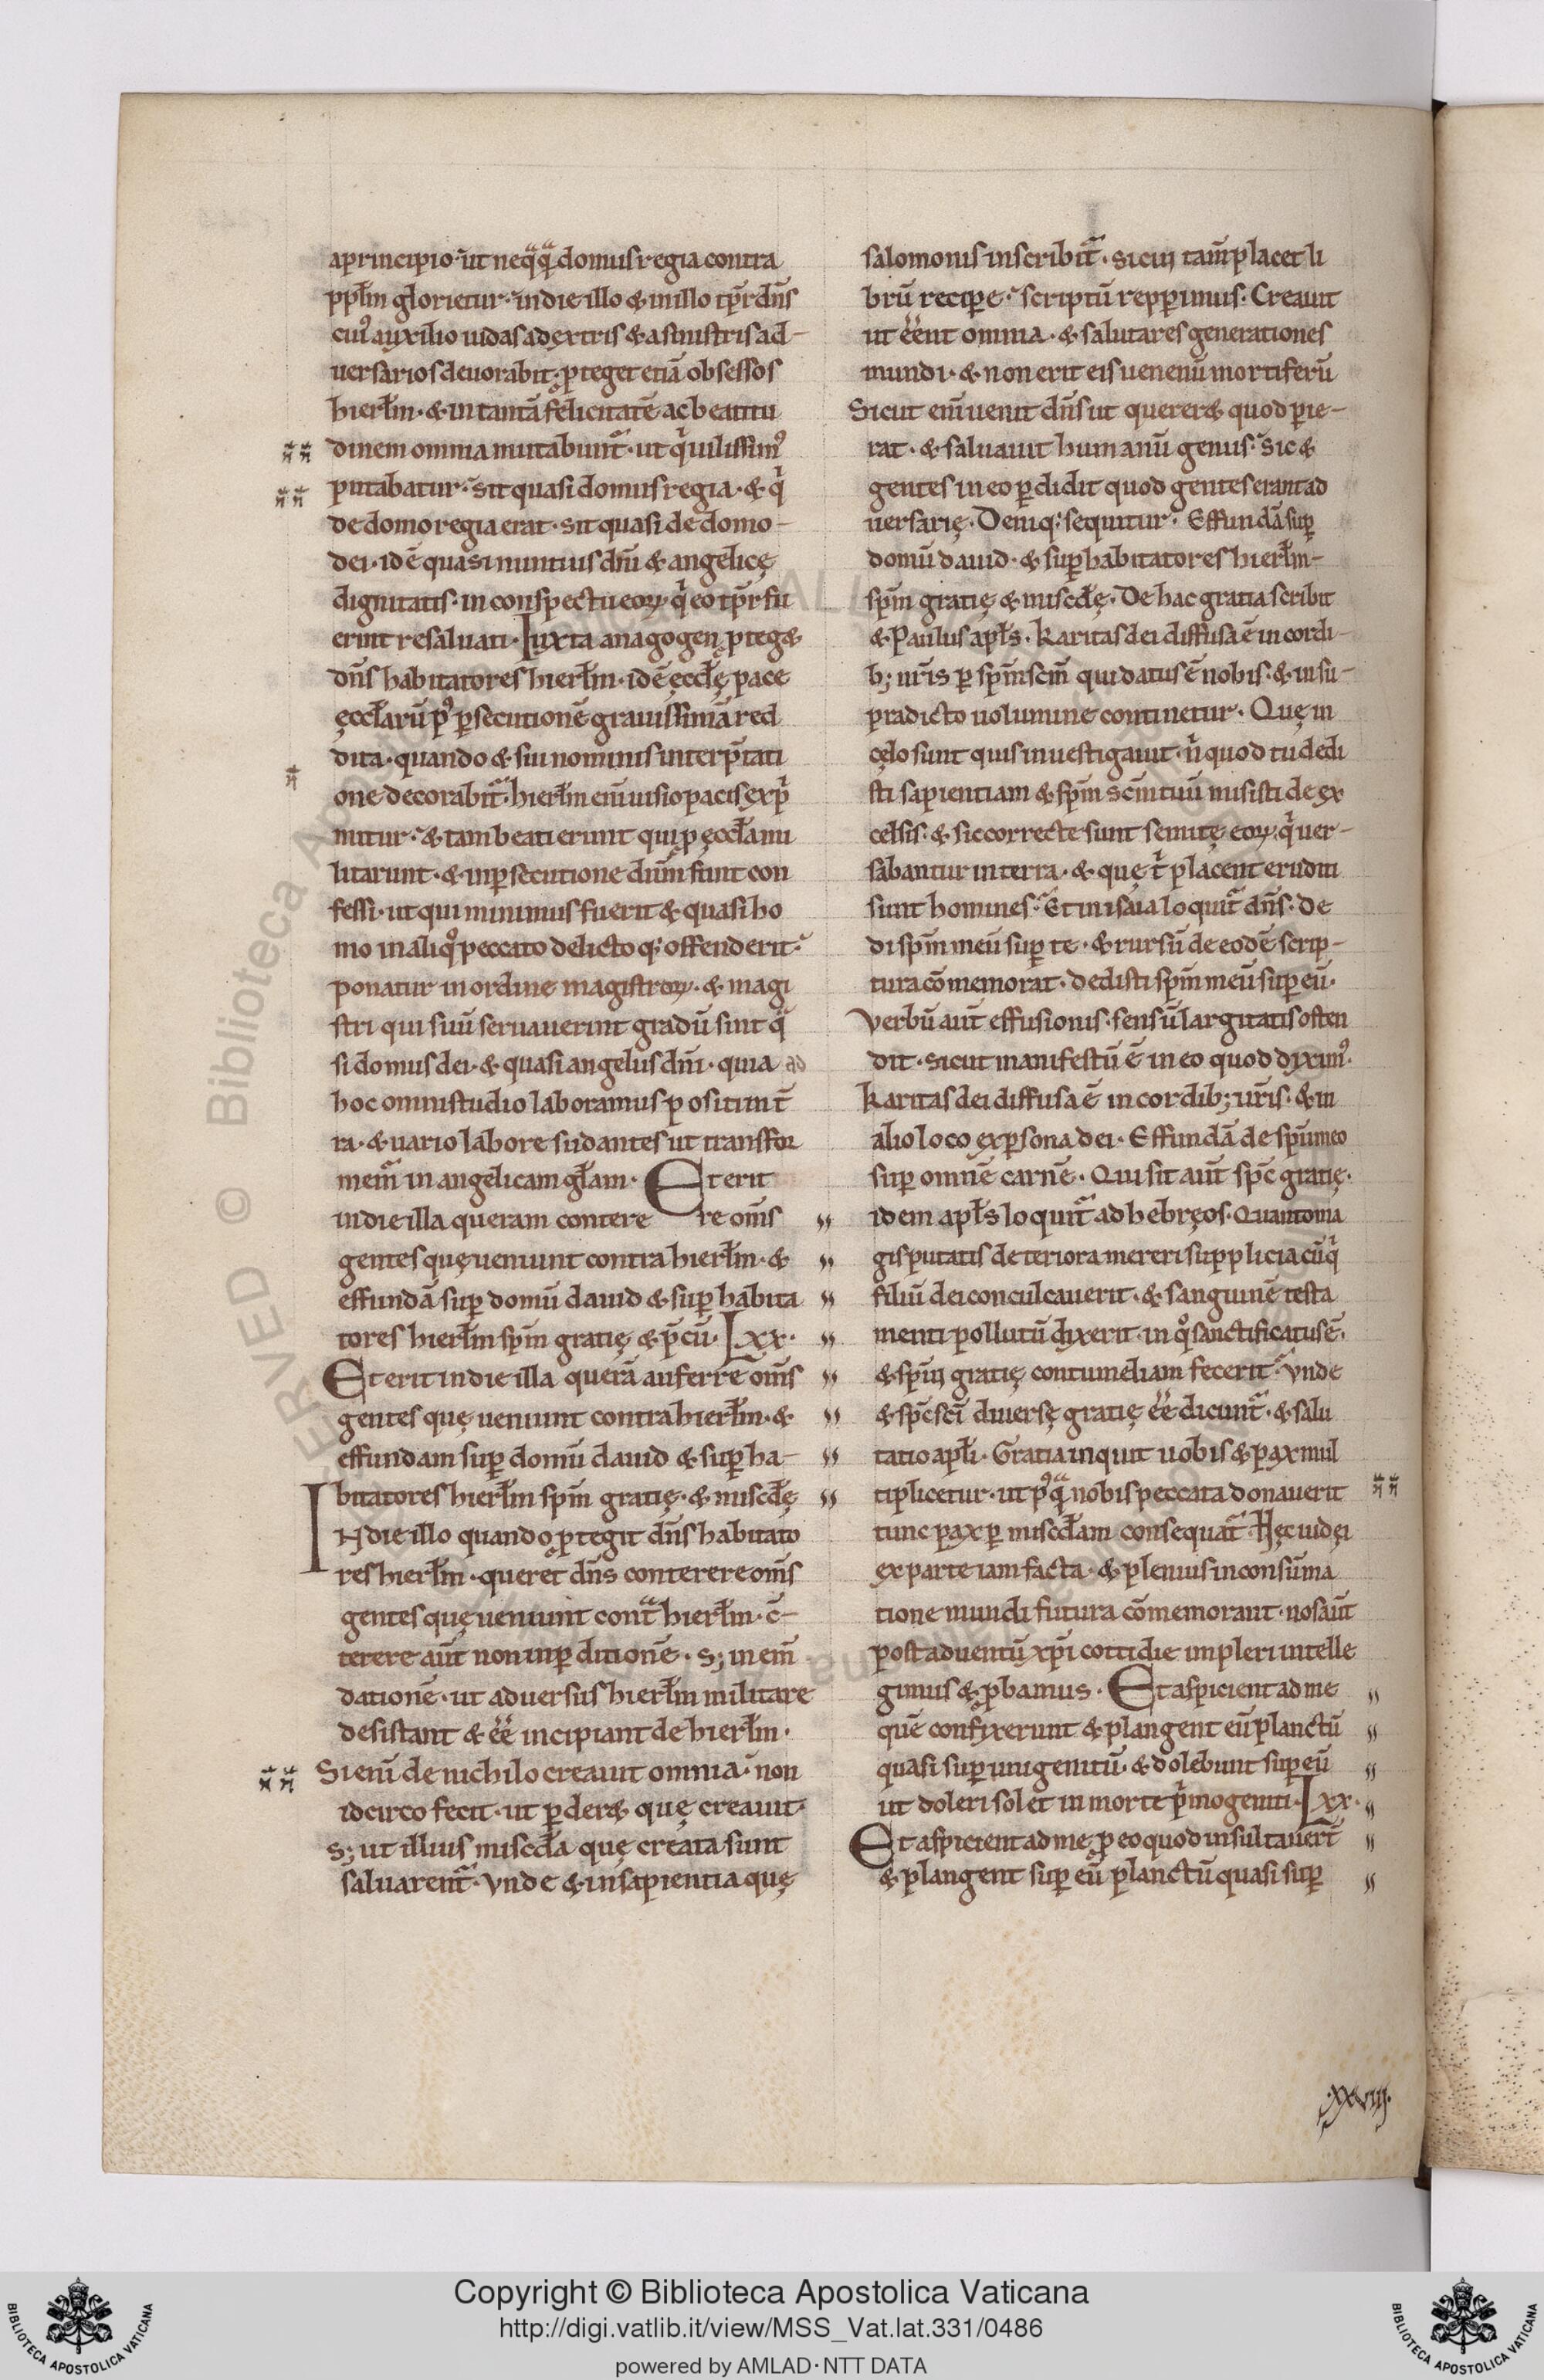 aprincipio. ut neqͣqͣ domus regia contra
ppłm glorietur. in die illo & in illo tp̄r dn̄s
cuiꝰ auxilio iudas adextris & asinistris ad-
uersarios deuorabit. ꝓteget etiā obsessos
hierłm. & in tantā felicitatē ac beatitu
dinem omnia mutabunt᷒. ut qͥ uilissimꝰ
putabatur. sit quasi domus regia. & qͥ
de domo regia erat. sit quasi de domo-
dei. idē quasi nuntius dn̄i & angelicę
dignitatis. in conspectu eoꝝ qͥ eo tp̄r fu
erint resaluati. Iuxta anagogen ꝓteg&
dn̄s habitatores hierłm. idē ęccłę pace
ęccłarū pꝰ ꝑsecutionē grauissimā red
dita. quando & sui nominis interp̄tati
one decorabit᷒. hierłm eni͂ uisio pacis expͥ
mitur. & tam beati erunt qui ꝓ ęccła mi
litarunt. & in ꝑsecutione dn̄m sunt con
fessi. ut qui minimus fuerit & quasi ho
mo in aliqͦ peccato delicto q; offenderit.
ponatur in ordine magistroꝝ. & magi
stri qui suū seruauerint gradū sint qͣ
si domus dei. & quasi angelus dn̄i. quia ad
hoc omni studio laboramus positi in t̄
ra. & uario labore sudantes ut transfor
mem᷒ in angelicam głam. Et erit
in die illa queram contere re om̄s
gentes quę ueniunt contra hierłm. &
effundā suꝑ domū dauid & suꝑ habita
tores hierłm spm̄ gratię & p̄cū. Lxx.
Et erit in die illa querā auferre om̄s
gentes quę ueniunt contra hierłm. &
effundam suꝑ domū dauid & suꝑ ha-
bitatores hierłm spm̄ gratię. & miscdłę
IN die illo quando ꝓtegit dn̄s habitato
res hierłm. queret dn̄s conterere om̄s
gentes quę ueniunt contͣ hierłm. c̄-
terere aut̄ non in ꝑditionē. s; in em̄
dationē. ut aduersus hierłm militare
desistant & ēē incipiant de hierłm.
Si eni͂ de nichilo creauit omnia. non
idcirco fecit. ut ꝑder& quę creauit.
s; ut illius miscdła quę creata sunt
saluarent᷒. Vnde & in sapientia quę
salomonis inscribit᷒. sicui tam̄ placet li
brū reciꝑe. scriptū repperimus. Creauit
ut ēēnt omnia. & salutares generationes
mundi. & non erit eis uenenū mortiferū
Sicut eni͂ uenit dn̄s ut querer& quod ꝑie-
rat. & saluauit humanū genus. sic &
gentes in eo ꝑdidit quod gentes erant ad
uersarię. Deniq; sequitur. Effundā suꝑ
domū dauid. & suꝑ habitatores hierłm-
spm̄ gratię & miscdłę. De hac gratia scribit
& Paulus apłs. Karitas dei diffusa ē in cordi-
b; nr̄is ꝑ spm̄ scm̄ qui datus ē nobis. & in su-
pradicto uolumine continetur. Quę in
cęlo sunt quis inuestigauit. nͥ quod tu dedi
sti sapientiam & spm̄ scm̄ tuū misisti de ex
celsis. & sic correcte sunt semitę eoꝝ qͥ uer-
sabantur in terra. & quę tͥ placent eruditi
sunt homines. Et in isaia loquit᷒ dn̄s. De
di spm̄ meū suꝑ te. & rursū de eodē scrip-
tura cōmemorat. dedisti spm̄ meū suꝑ eū.
Verbū aut̄ effusionis. sensū largitatis osten
dit. sicut manifestū ē in eo quod diximꝰ.
Karitas dei diffusa ē in cordib; nr̄is. & in
alio loco ex ꝑsona dei. Effundā de spū meo
suꝑ omnē carnē. Qui sit aut̄ spc̄ gratię.
idem apłs loquit᷒ ad hebręos. Quanto ma
gis putatis deteriora mereri supplicia cū qͥ
filiū dei conculcauerit. & sanguinē testa
menti pollutū dixerit. in qͦ sanctificatus ē.
& spui gratię contumeliam fecerit. Vnde
& spc̄ scī diuersę gratię ēē dicunt᷒. & salu
tatio apłi. Gratia inquit uobis & pax mul
tiplicetur. ut pꝰqͣ nobis peccata donauerit
tunc pax ꝑ miscdłam consequat᷒. Hęc iudęi
ex parte iam facta. & plenius in consūma
tione mundi futura cōmemorant. nos aut̄
post aduentū xp̄i cottidie impleri intelle
gimus & ꝓbamus. Et aspicient ad me
quē confixerunt & plangent eū planctū
quasi suꝑ unigenitū. & dolebunt suꝑ eū
ut doleri solet in morte pͥmogeniti. Lxx.
Et aspicient ad me ꝓ eo quod insultauert̄
& plangent suꝑ eū planctū quasi suꝑ
.xxviij.
Copyright © Biblioteca Apostolica Vaticana
http://digi.vatlib.it/view/MSS_Vat.lat.331/0486
powered by AMLAD·NTT DATA
BIBLIOTECA APOSTOLICA VATICANA
BIBLIOTECA APOSTOLICA VATICANA